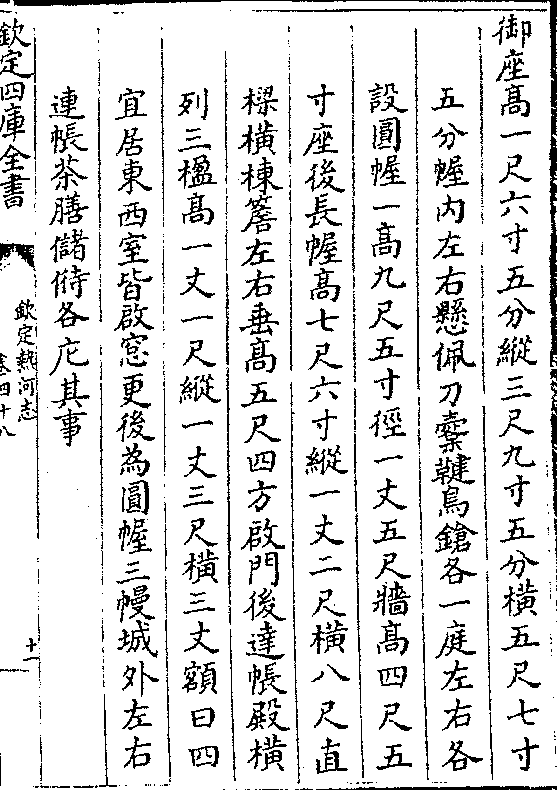 御座髙一尺六寸五分縱三尺九寸五分橫五尺七寸
五分幄内左右懸佩刀櫜鞬鳥鎗各一庭左右各
設圓幄一髙九尺五寸徑一丈五尺牆髙四尺五
寸座後長幄髙七尺六寸縱一丈二尺橫八尺直
樑橫棟簷左右垂髙五尺四方啟門後達帳殿橫
列三楹髙一丈一尺縱一丈三尺橫三丈額曰四
宜居東西室皆啟窓更後為圓幄三幔城外左右
連帳茶膳儲偫各庀其事
欽定四庫全書
欽定熱河志
卷四十八
十一